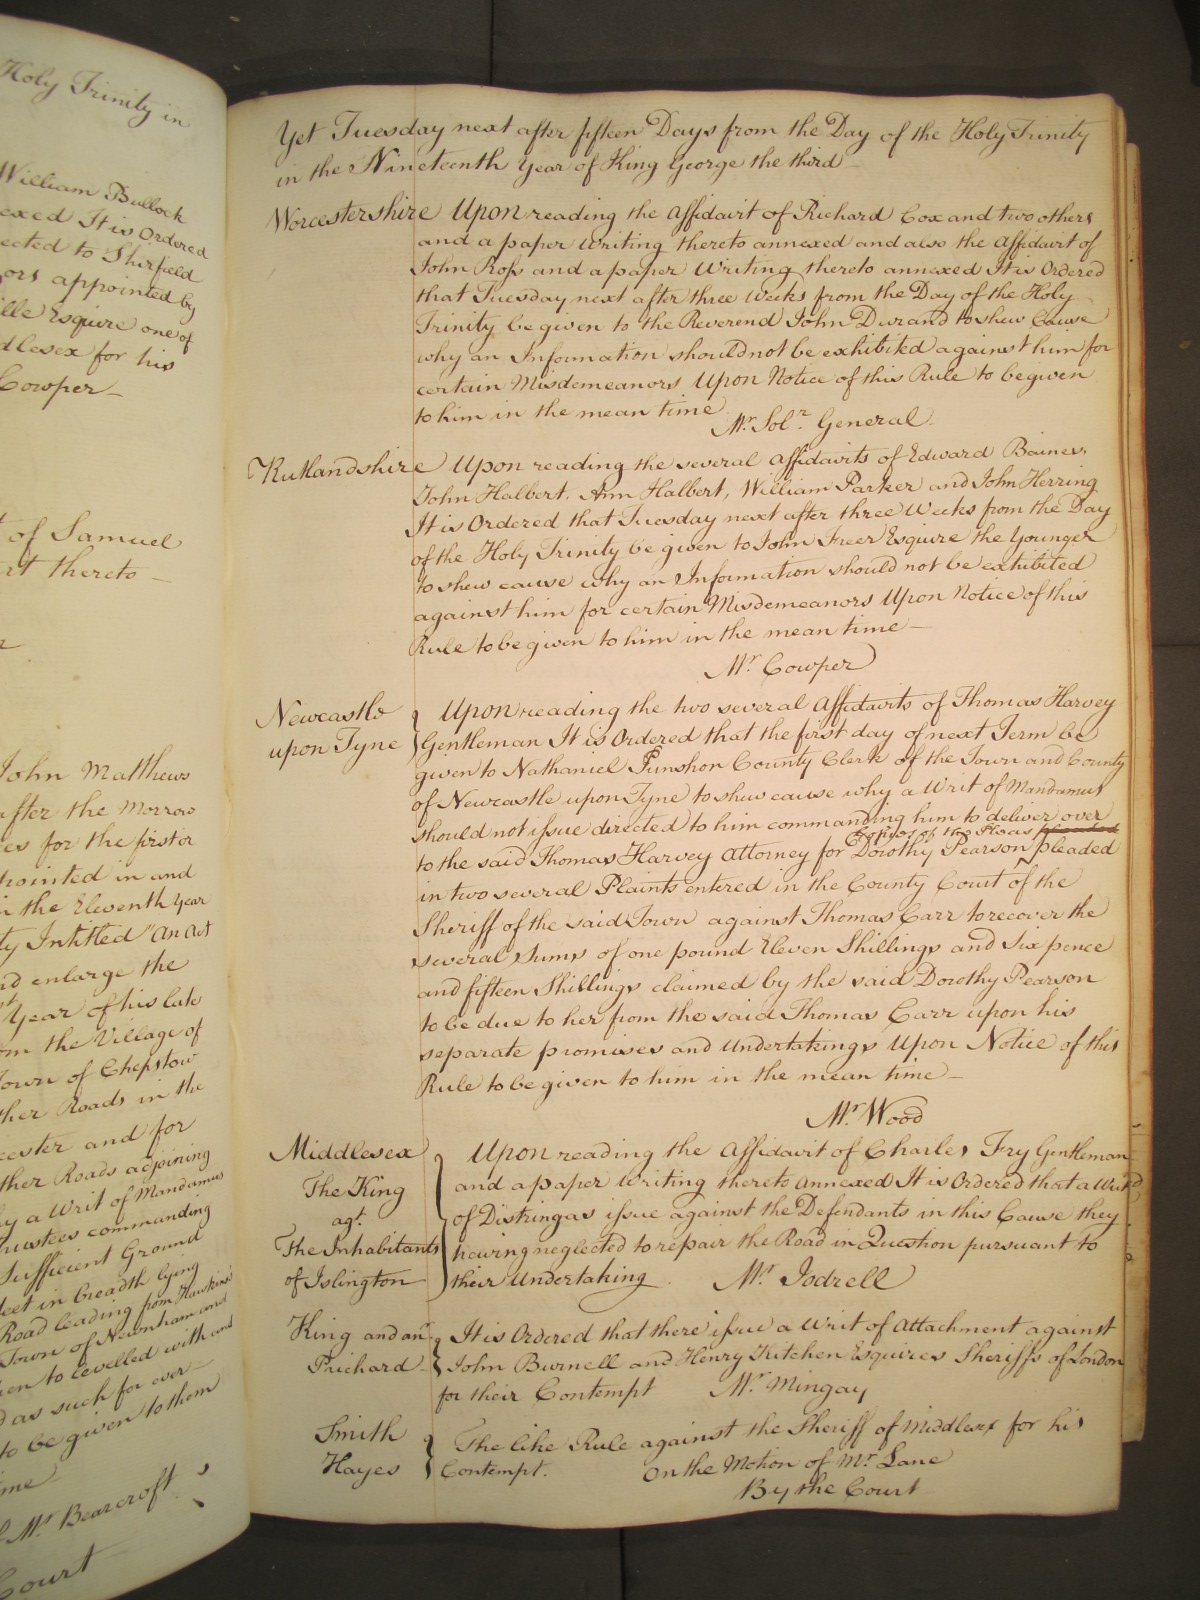 Holy Trinity in
William Bullock
exed It is Ordered
ected to Shirfield
ors appointed by
ille Esquire one of
dlesex for his
Cowper
of Samuel
rt thereto
John Matthews
after the Morrow
es for the first or
pointed in and
in the Eleventh Year
ty Intitled "An Act
nd enlarge the
Year of his late
om the Village of
Town of Chepstow
ther Roads in the
cester and for
ther Roads adjoining
hy a Writ of Mandamus
rustees commanding
Sufficient Ground
feet in breadth lying
Road leading from
Town of Newnham and
en to levelled with and
d as such for ever
to be given to them
ime
Mr. Bearcroft
Court
Yet Tuesday next after fifteen Days from the Day of the Holy Trinity
in the Nineteenth Year of King George the third
Worcestershire Upon reading the Affidavit of Richard Cox and two others
and a paper Writing thereto annexed and also the Affidavit of
John Ross and a paper Writing thereto annexed It is Ordered
that Tuesday next after three Weeks from the Day of the Holy
Trinity be given to the Reverend John Durand to shew Cause
why an Information should not be exhibited against him for
certain Misdemeanors Upon Notice of this Rule to be given
to him in the mean time
Mr. Solr. General.
Rutlandshire Upon reading the several Affidavits of Edward Baines,
John Halbert, Ann Halbert, William Parker and John Herring
It is Ordered that Tuesday next after three Weeks from the Day
of the Holy Trinity be given to John Freer Esquire the Younger
to shew cause why an Information should not be exhibited
against him for certain Misdemeanors Upon Notice of this
Rule to be given to him in the mean time
Mr. Cowper
Newcastle upon Tyne
Upon reading the two several Affidavits of Thomas Harvey
Gentleman It is Ordered that the first day of next Term be
given to Nathaniel Punshon County Clerk of the Town and County
of Newcastle upon Tyne to shew cause why a Writ of Mandamus
should not issue directed to him commanding him to deliver over
Copies of the Pleas pleaded
to the said Thomas Harvey Attorney for Dorothy Pearson pleaded
in two several Plaints entered in the County Court of the
Sheriff of the said Town against Thomas Carr to recover the
several Sums of one pound Eleven Shillings and Six pence
and fifteen Shillings claimed by the said Dorothy Pearson
to be due to her from the said Thomas Carr upon his
separate promises and Undertakings Upon Notice of this
Rule to be given to him in the mean time
Mr. Wood
Middlesex
The King
agt.
The Inhabitants
of Islington
Upon reading the Affidavit of Charles Fry Gentleman
and a paper Writing thereto annexed It is Ordered that a Writ
of Distringas issue against the Defendants in this Cause they
having neglected to repair the Road in Question pursuant to
their Undertaking Mr. Jodrell
King and anr.
Prichard
It is Ordered that there issue a Writ of Attachment against
John Burnell and Henry Kitchen Esquires Sheriffs of London
for their Contempt Mr. Mingay
Smith
Hayes
The like Rule against the Sheriff of Middlesex for his
Contempt. On the Motion of Mr. Lane
By the Court